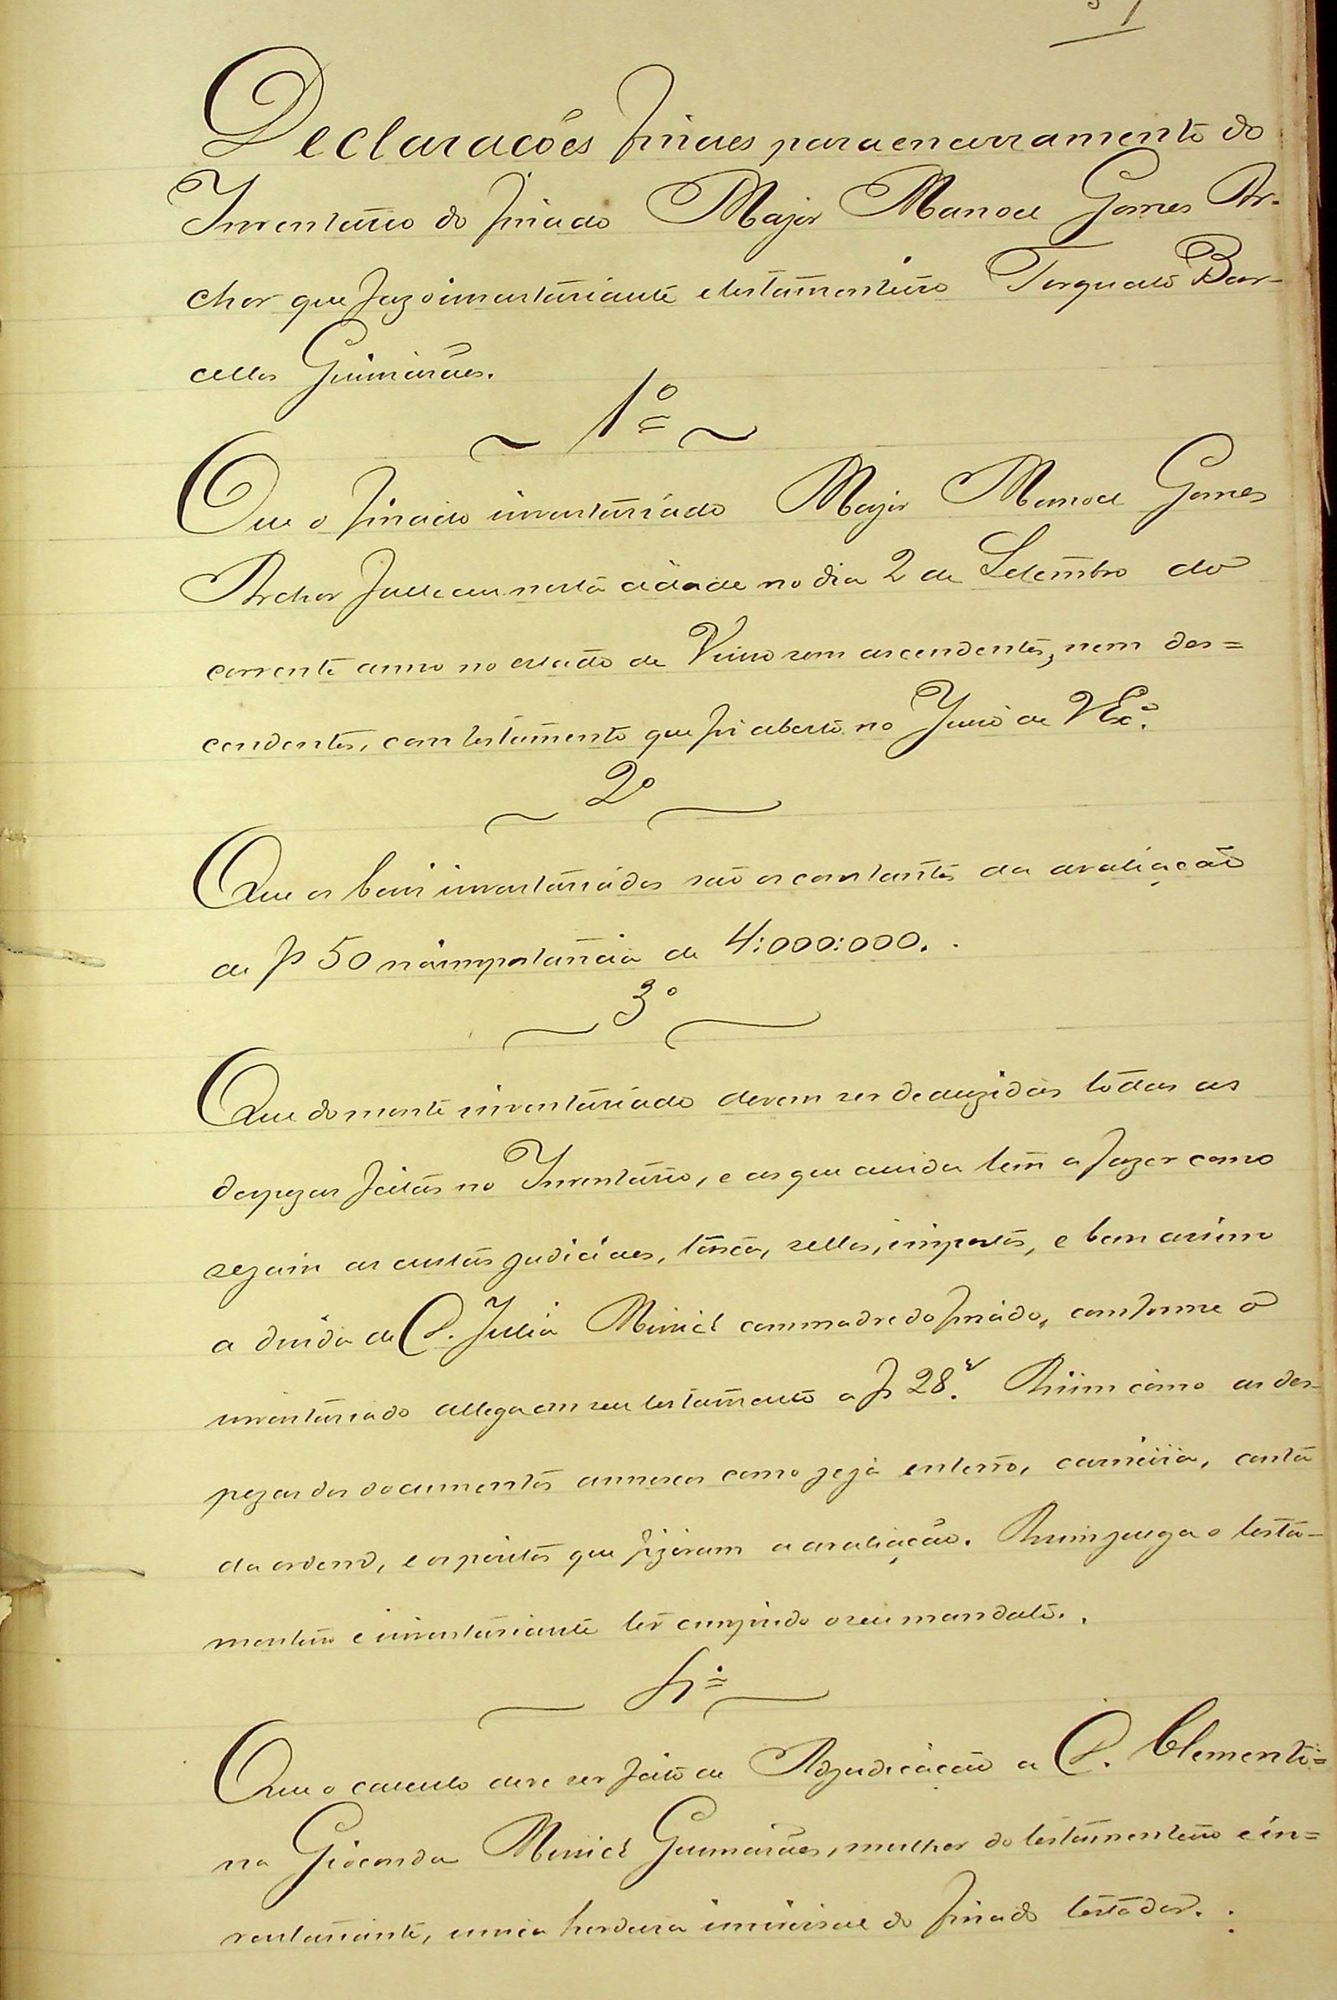 51
Declarações finaes para encerramento do
Inventario do finado Major Manoel Gomes Ar-
cher que faz o inventariante e testamenteiro Torquato Bar-
cellos Guimarães.
~ 1º ~
Que o finado inventariado Major Manoel Gomes
Archer falleceu nesta cidade no dia 2 de Setembro do
corrente anno no estado de Viuvo sem ascendentes, nem des=
cendentes, com testamento que foi aberto no Juizo de VExª.
~ 2º ~
Que os bens inventariados são os constantes da avaliação
de fs 50 na importancia de 4:000:000.
~ 3º ~
Que do monte inventariado devem ser deduzidas todas as
despezas feitas no Inventario, e as que ainda tem a fazer como
sejam as custas judiciaes, taxa, sellos, impostos, e bem assim
a divida de D. Julia commadre do finado, conforme o
inventariado allega em seu testamento a fs 28v. Assim como as des-
pezas dos documentos annexos como seja enterro, carneira, conta
da ordem, e os peritos que fizeram a avaliação. Assim julga o testa-
menteiro e inventariante ter cumprido o seu mandato.
~ 4º ~
Que o calculo deve ser feito de Adjudicação a D. Clementi=
na Gioconda Guimarães, mulher do testamenteiro e in=
ventariante, unica herdeira universal do finado testador.